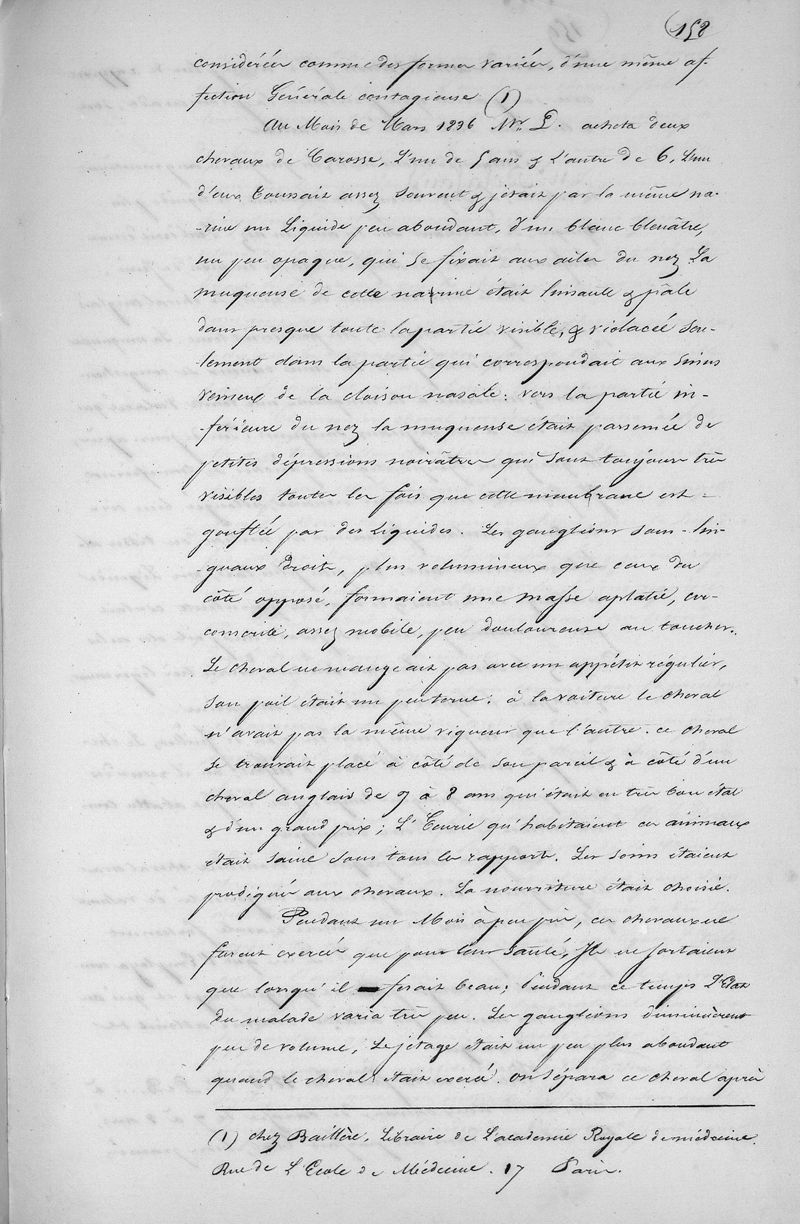 158
considérées comme des formes variées, d'une même af-
fection Générale contagieuse (1)
Au Mois de Mars 1836 Mr. P. acheta deux
chevaux de Carosse, L'un de 5 ans & L'autre de 6. L'un
d'eux toussait assez souvent & jetait par la même na-
-rine un Liquide peu abondant, d'un blanc bleuâtre,
un peu opaque, qui se fixait aux ailes du nez La
muqueuse de cette narine était luisante & pâle
dans presque toute la partie visible, & violacée seu-
lement dans la partie qui correspondait aux sinus
veineux de la cloison nasale: vers la partie in-
-férieure du nez la muqueuse était parsemée de
petites dépressions noirâtres qui sont toujours très
visibles toutes les fois que cette membrane est -
gonflée par des Liquides. Les ganglions sous-lin-
-guaux droits, plus volumineux que ceux du
côté opposé, formaient une masse aplatie, cir-
conscrite, assez mobile, peu douloureuse au toucher.
Le cheval ne mangeait pas avec un appétit régulier,
son poil était un peu terne: à la voiture le cheval
n'avait pas la même vigueur que l'autre. ce cheval
se trouvait placé à côté de son pareil & à côté d'un
cheval anglais de 7 à 8 ans qui était en très bon état
& d'un grand prix; L'Ecurie qu'habitaient ces animaux
était saine sous tous les rapports. Les soins étaient
prodigués aux chevaux. La nourriture était choisie.
Pendant un Mois à peu près, ces chevaux ne
furent exercés que pour leur santé, Ils ne sortaient
que lorsqu'il faisait beau; Pendant ce temps L'Etat
du malade varia très peu. Les ganglions diminuèrent
peu de volume, Le jetage était un peu plus abondant
quand le cheval était exercé. on sépara ce cheval après
(1) chez Baillère, Libraire de L'academie Royale de médecine.
Rue de L'Ecole de Médecine. 17 Paris.